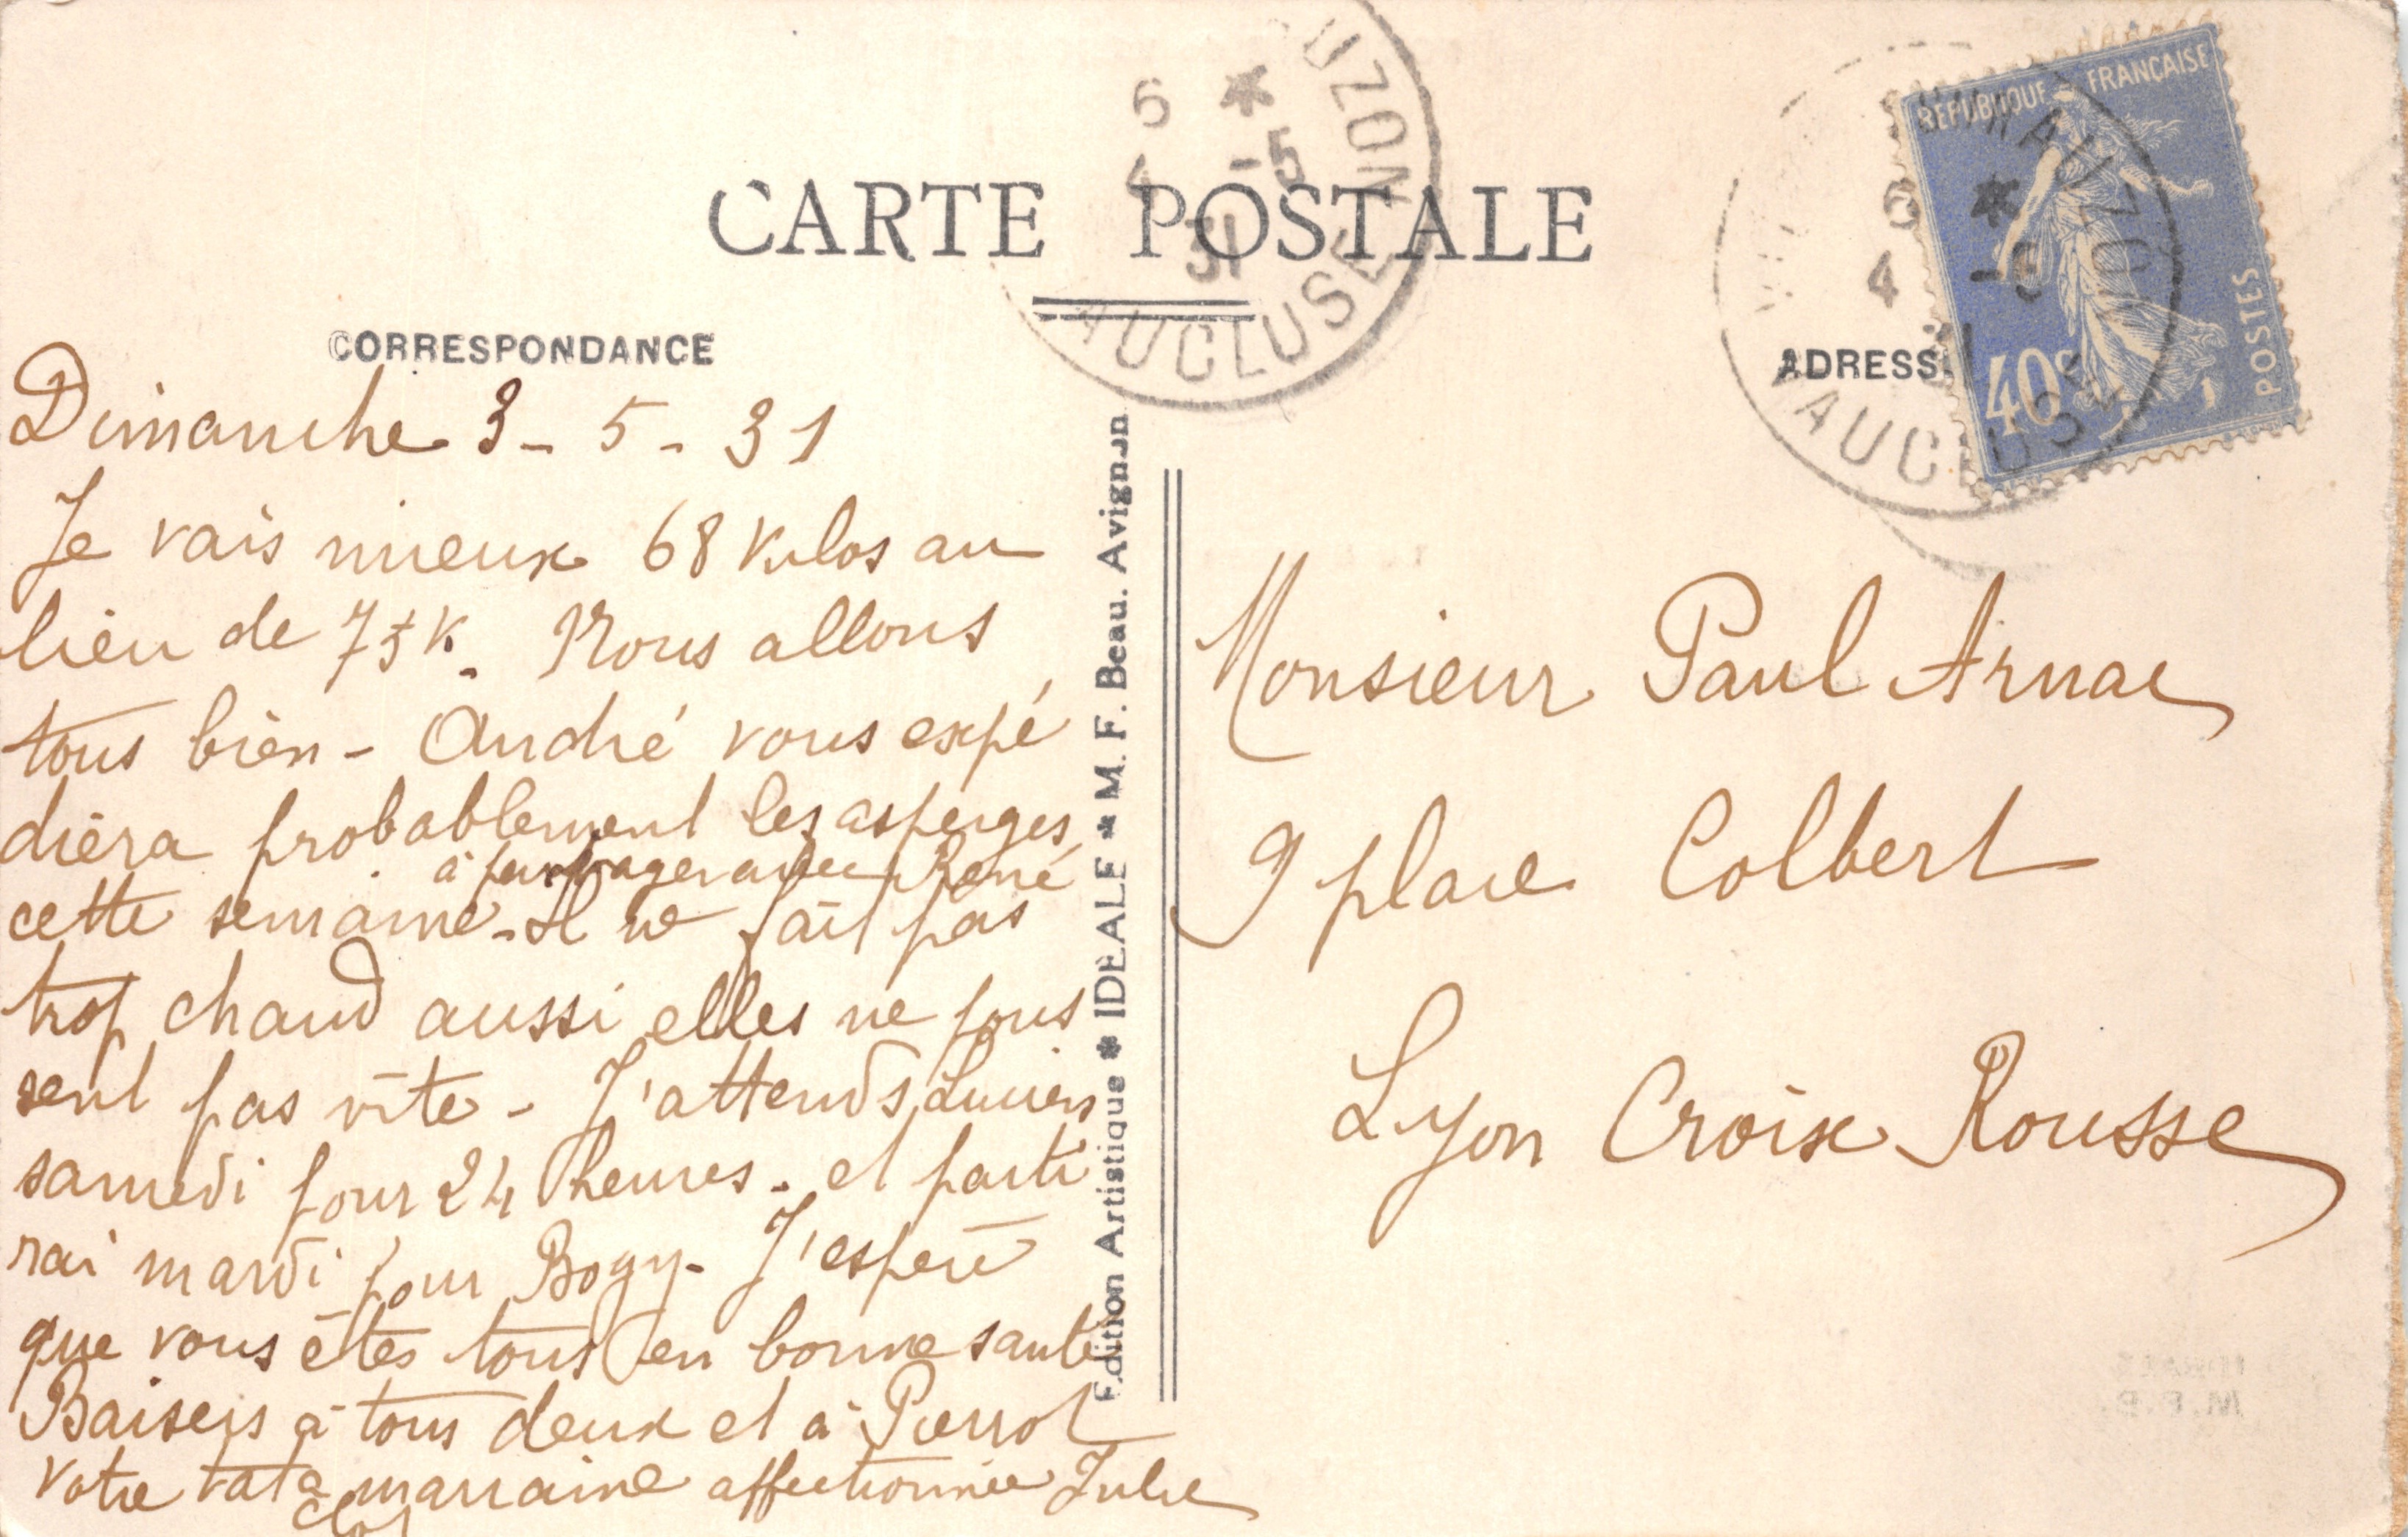 CARTE POSTALE
CORRESPONDANCE
Dimanche 3 - 5 - 31
Je vais mieux 68 Kilos au
lieu de 75 K. Nous allons
tous bien - André vous expé
diera probablement les asperges
à partager avec René
cette semaine - Il ne fait pas
trop chaud aussi elles ne pous
sent pas vite - J'attends Lucien
samedi pour 24 heures - et parti
rai mardi pour Bogy - J'espère
que vous êtes tous en bonne santé
Baisers à tous deux et à Pierrot
Votre tata marraine affectionnée Julie
Edition Artistique * IDEALE * M. F. Beau. Avignon
6 *
4 -5
31
UZON
AUCLUSE
ADRESS
REPUBLIQUE FRANÇAISE
40c
POSTES
6 *
4 -5
31
AUZO
VAUCLUSE
Monsieur Paul Arnac
9 place Colbert
Lyon Croix Rousse
M.F.B.